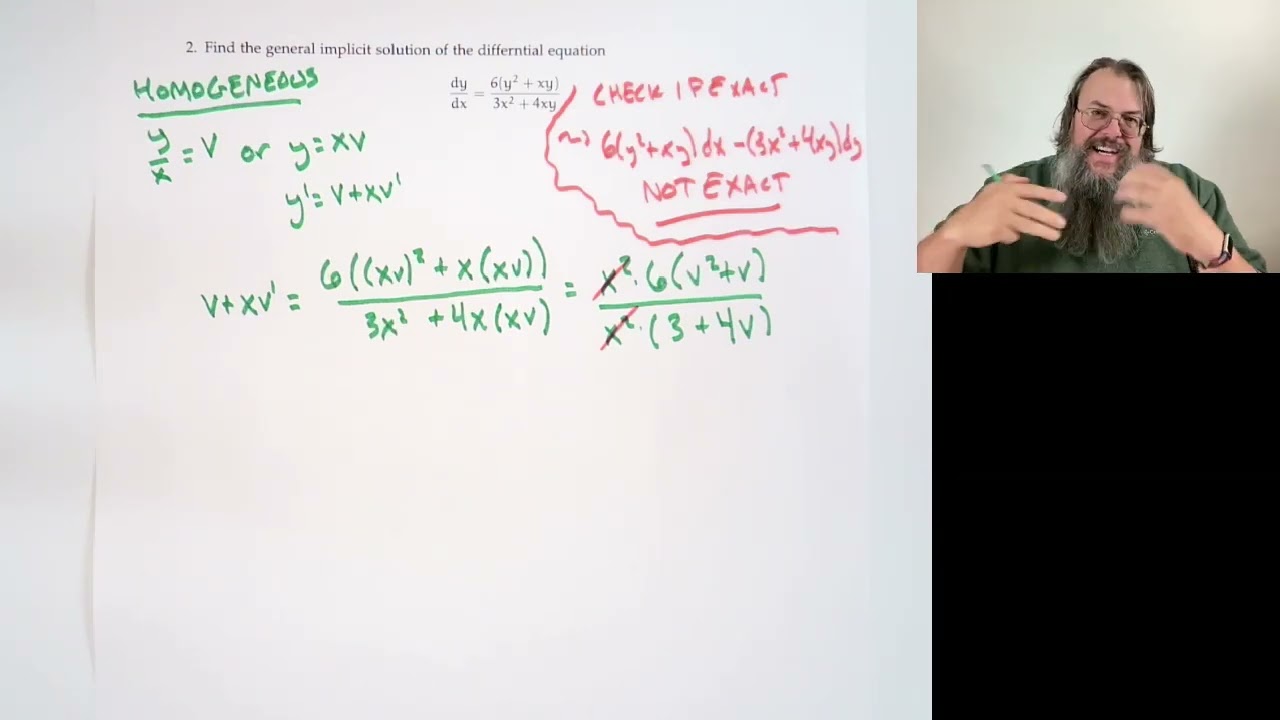 2. Find the general implicit solution of the differntial equation
HOMOGENEOUS
dy/dx = 6(y² + xy)/3x² + 4xy
CHECK IF EXACT
y/x = v or y = xv
~> 6(y²+xy)dx - (3x²+4xy)dy
NOT EXACT
y' = v+xv'
v+xv' = 6((xv)² + x(xv))/3x² + 4x(xv) = x²·6(v²+v)/x²·(3+4v)